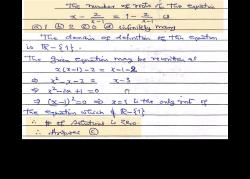 The number of roots in the equation
x - 2/(x-1) = 1 - 2/(x-1) is
(a) 1 (b) 2 (c) 0 (d) infinitely many
The domain of definition of the equation
is R - {1}.
The given equation may be rewritten as
x(x-1) - 2 = x-1-2
⇒ x² - x - 2 = x - 3
⇒ x² - 2x + 1 = 0
⇒ (x-1)² = 0 ⇒ x = 1 is the only root of
the equation which ∉ R - {1}
∴ # of solutions is zero
∴ Answer (c)